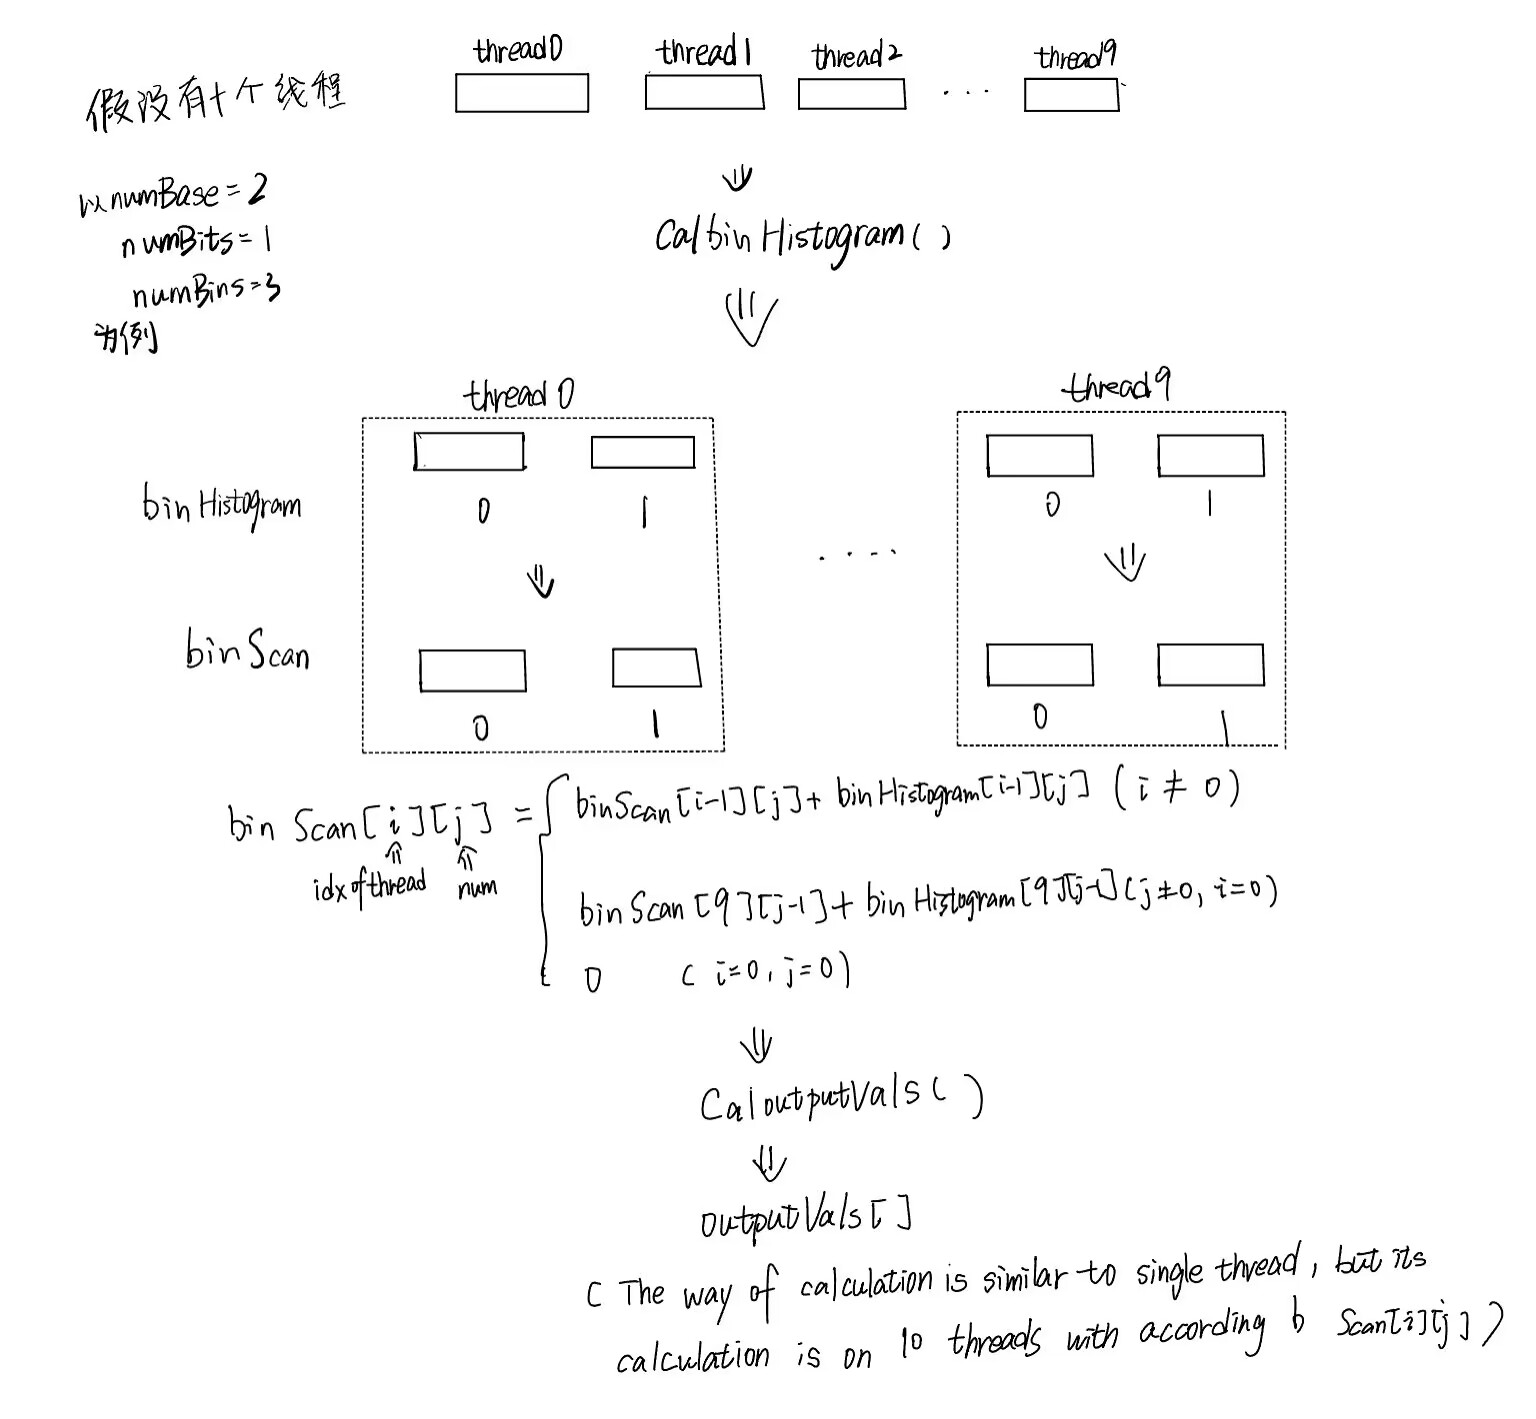 thread0 thread1 thread2 ... thread9
假设有十个线程
以numBase=2
numBits=1
numBins=3
为例
CalbinHistogram()
thread0 .... thread9
binHistogram
0 1 0 1
binScan
0 1 0 1
bin Scan[i][j] = binScan[i-1][j]+ binHistogram[i-1][j] (i ≠ 0)
idx of thread num
binScan[9][j-1]+ binHistogram[9][j-1](j≠0, i=0)
0 (i=0, j=0)
CaloutputVals()
outputVals[]
( The way of calculation is similar to single thread, but its
calculation is on 10 threads with according b Scan[i][j])